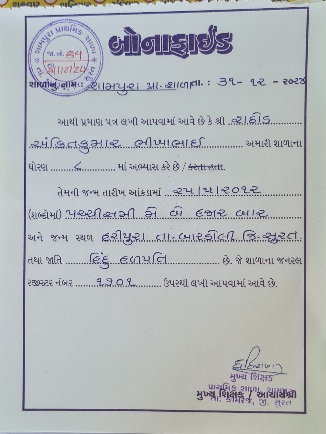 શામપુરા પ્રાથમિક શાળા
જા. નં. ૬૧
બોનાફાઈડ
શાળાનું નામ : શામપુરા પ્રા. શાળા તા. : ૩૧-૧૨-૨૦૨૪
આથી પ્રમાણ પત્ર લખી આપવામાં આવે છે કે શ્રી રાઠોડ
અંકિતકુમાર ભીખાભાઈ અમારી શાળાના
ધોરણ ૮ માં અભ્યાસ કરે છે / કરતા હતા.
તેમની જન્મ તારીખ આંકડામાં ૨૫/૫/૨૦૧૨
(શબ્દોમાં) પચ્ચીસમી મે બે હજાર બાર
અને જન્મ સ્થળ હરીપુરા તા-બારડોલી જિ-સુરત
તથા જાતિ હિંદુ હળપતિ છે. જે શાળાના જનરલ
રજીસ્ટર નંબર ૧૧૦૧ ઉપરથી લખી આપવામાં આવે છે.
મુખ્ય શિક્ષક
મુખ્ય શિક્ષક / આચાર્યશ્રી
તા. કામરેજ, જી. સુરત